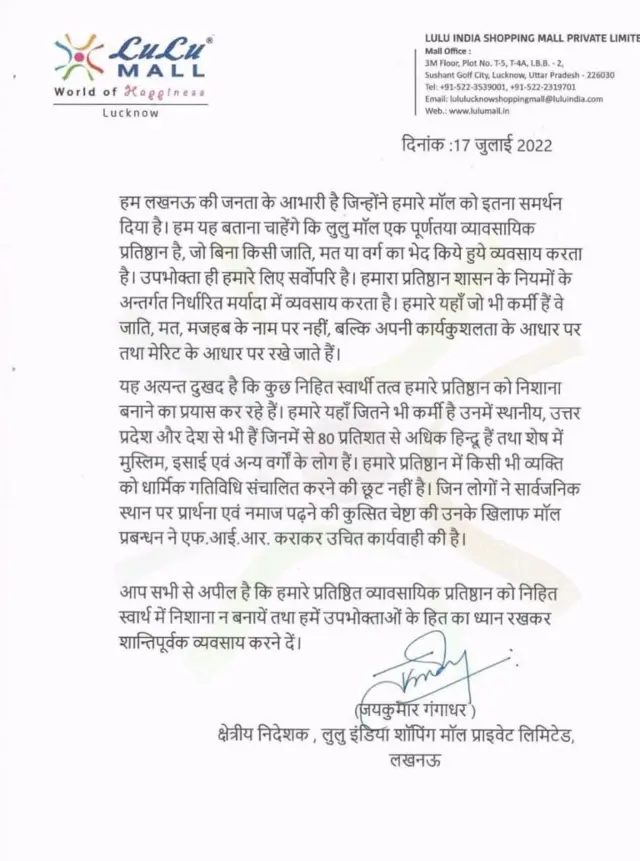 LuLu®
MALL
World of Happiness
Lucknow
LULU INDIA SHOPPING MALL PRIVATE LIMITE
Mall Office :
3M Floor, Plot No. T-5, T-4A, I.B.B. - 2,
Sushant Golf City, Lucknow, Uttar Pradesh - 226030
Tel: +91-522-3539001, +91-522-2319701
Email: lululucknowshoppingmall@luluindia.com
Web.: www.lulumall.in
दिनांक :17 जुलाई 2022
हम लखनऊ की जनता के आभारी है जिन्होंने हमारे मॉल को इतना समर्थन
दिया है। हम यह बताना चाहेंगे कि लुलु मॉल एक पूर्णतया व्यावसायिक
प्रतिष्ठान है, जो बिना किसी जाति, मत या वर्ग का भेद किये हुये व्यवसाय करता
है। उपभोक्ता ही हमारे लिए सर्वोपरि है। हमारा प्रतिष्ठान शासन के नियमों के
अन्तर्गत निर्धारित मर्यादा में व्यवसाय करता है। हमारे यहाँ जो भी कर्मी हैं वे
जाति, मत, मजहब के नाम पर नहीं, बल्कि अपनी कार्यकुशलता के आधार पर
तथा मेरिट के आधार पर रखे जाते हैं।
यह अत्यन्त दुखद है कि कुछ निहित स्वार्थी तत्व हमारे प्रतिष्ठान को निशाना
बनाने का प्रयास कर रहे हैं। हमारे यहाँ जितने भी कर्मी है उनमें स्थानीय, उत्तर
प्रदेश और देश से भी हैं जिनमें से 80 प्रतिशत से अधिक हिन्दू हैं तथा शेष में
मुस्लिम, इसाई एवं अन्य वर्गों के लोग हैं। हमारे प्रतिष्ठान में किसी भी व्यक्ति
को धार्मिक गतिविधि संचालित करने की छूट नहीं है। जिन लोगों ने सार्वजनिक
स्थान पर प्रार्थना एवं नमाज पढ़ने की कुत्सित चेष्टा की उनके खिलाफ मॉल
प्रबन्धन ने एफ.आई.आर. कराकर उचित कार्यवाही की है।
आप सभी से अपील है कि हमारे प्रतिष्ठित व्यावसायिक प्रतिष्ठान को निहित
स्वार्थ में निशाना न बनायें तथा हमें उपभोक्ताओं के हित का ध्यान रखकर
शान्तिपूर्वक व्यवसाय करने दें।
(जयकुमार गंगाधर )
क्षेत्रीय निदेशक , लुलु इंडिया शॉपिंग मॉल प्राइवेट लिमिटेड,
लखनऊ